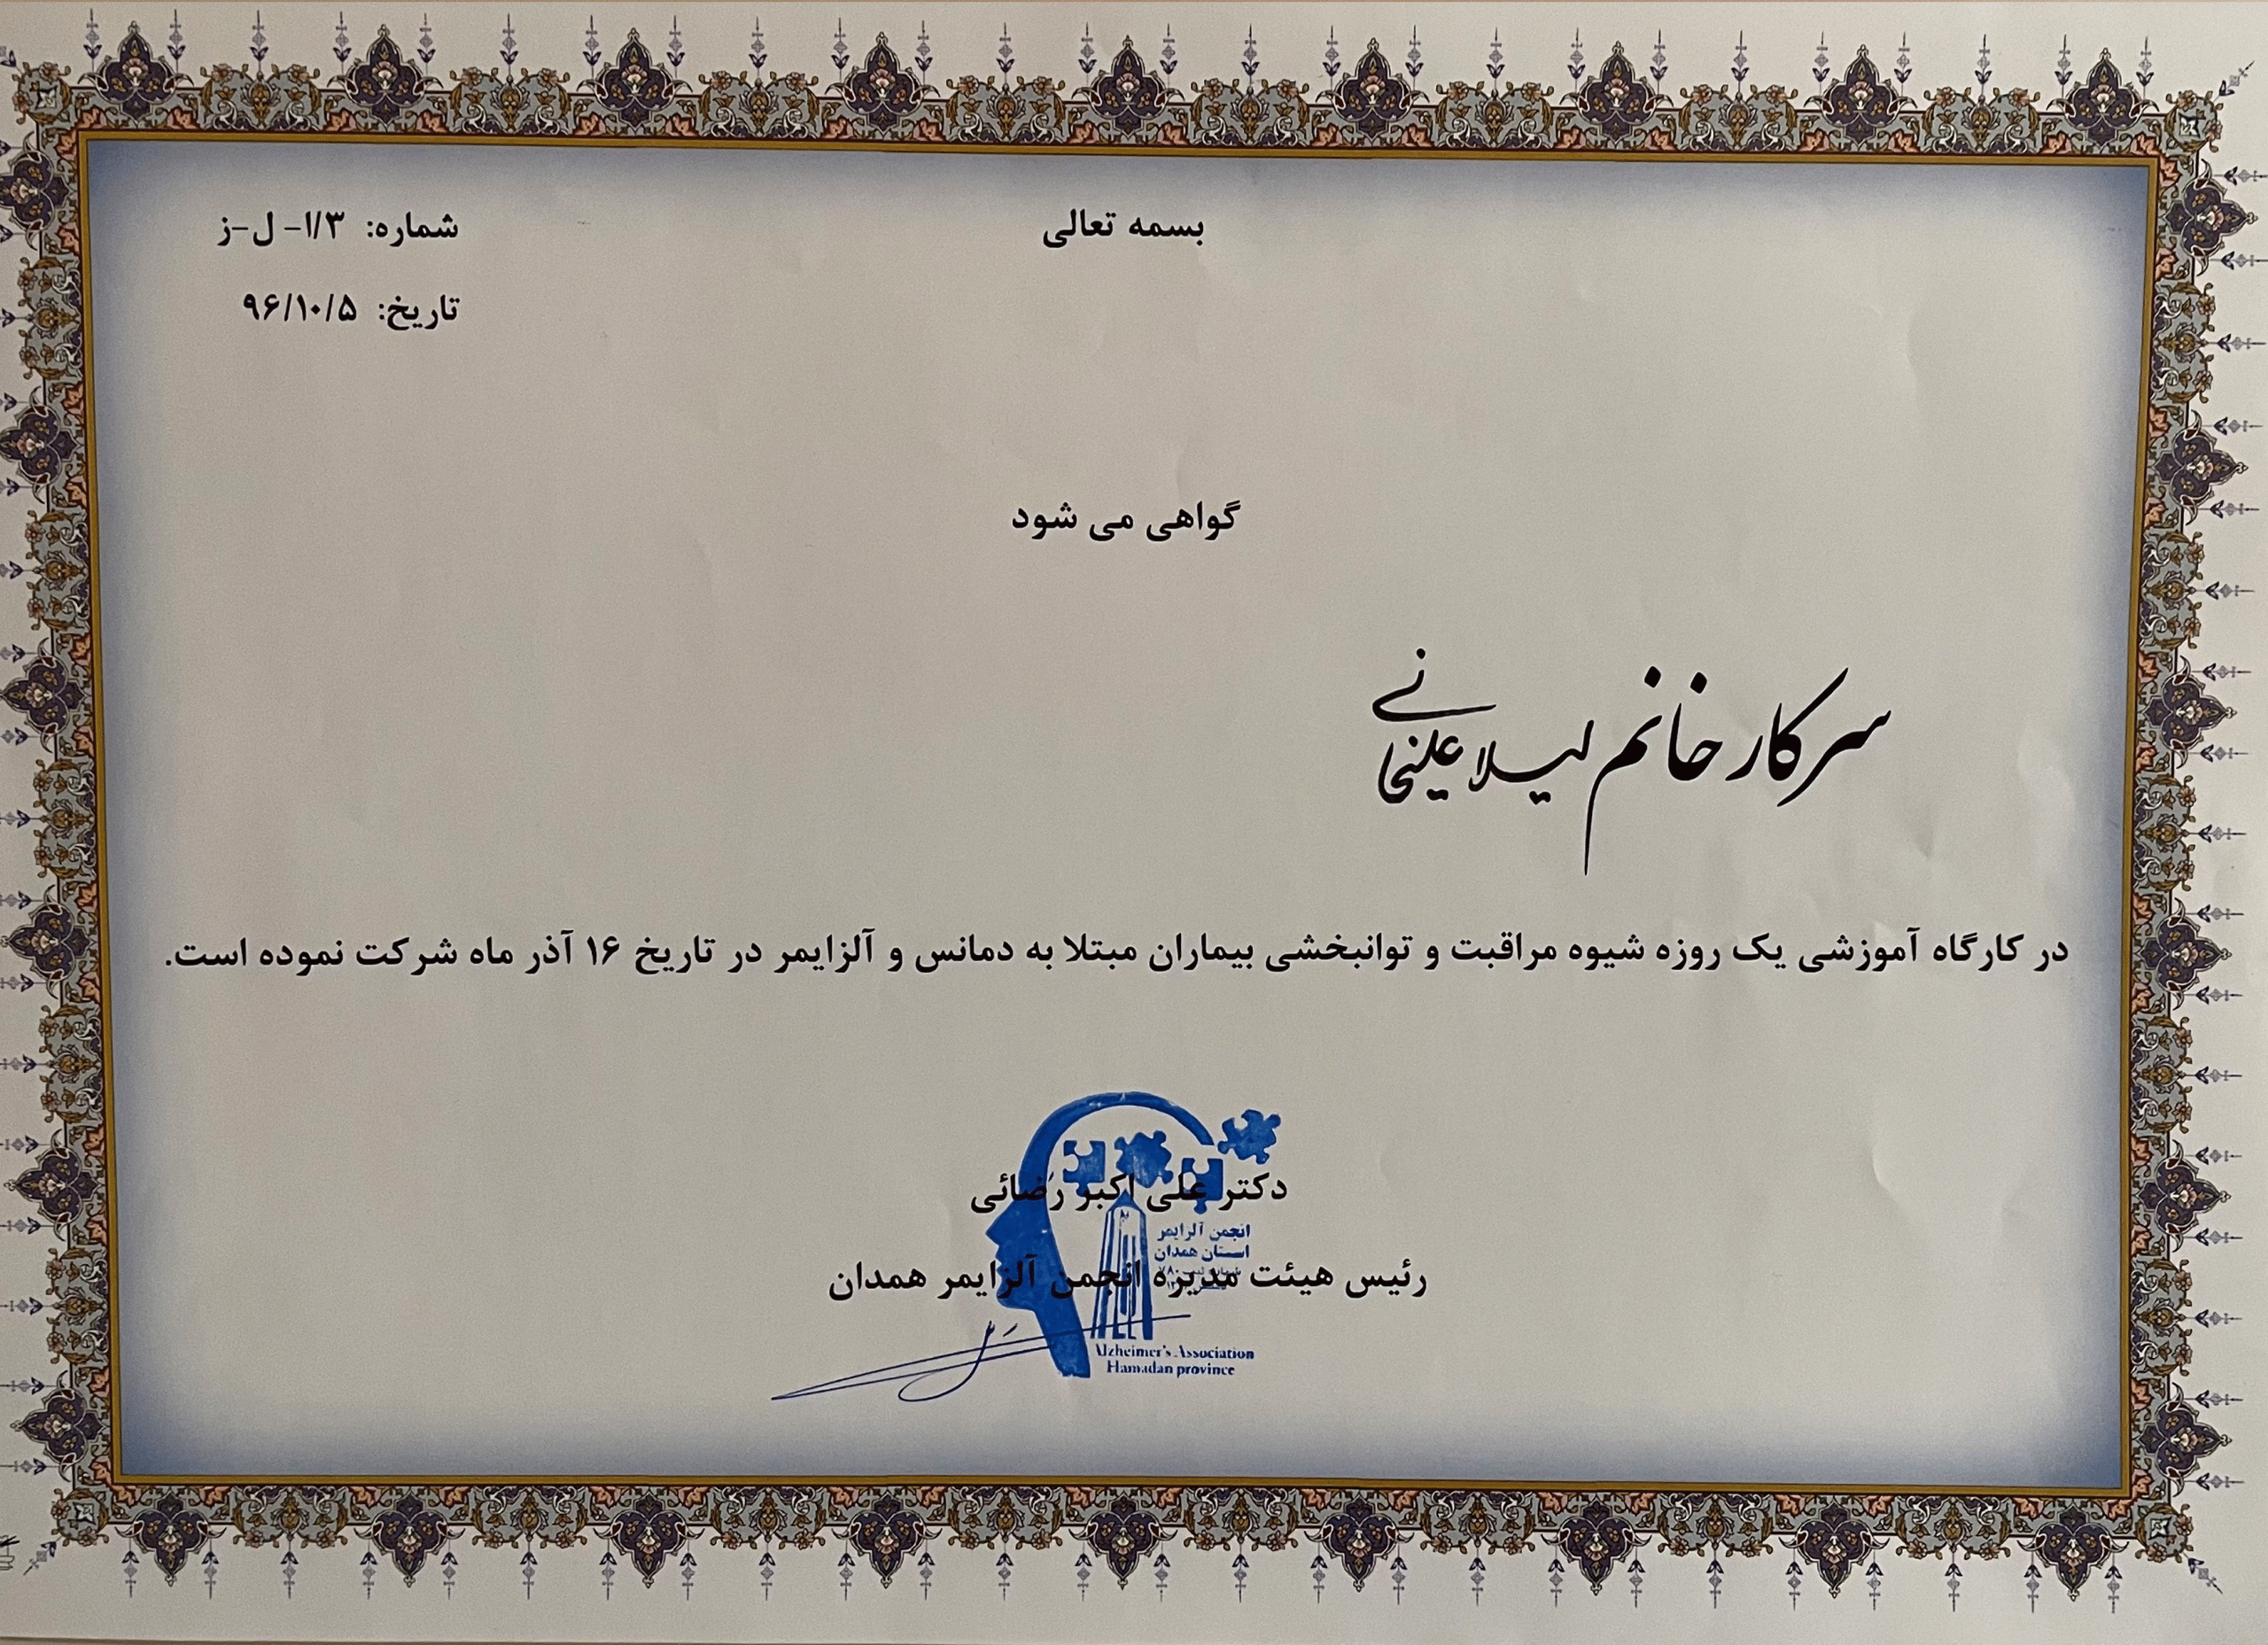 بسمه تعالی
شماره: ۱/۳- ل-ز
تاریخ: ۹۶/۱۰/۵
گواهی می شود
سرکار خانم لیلا علیخانی
در کارگاه آموزشی یک روزه شیوه مراقبت و توانبخشی بیماران مبتلا به دمانس و آلزایمر در تاریخ ۱۶ آذر ماه شرکت نموده است.
دکتر علی اکبر رضائی
انجمن آلزایمر
استان همدان
رئیس هیئت مدیره انجمن آلزایمر همدان
Alzheimer's Association
Hamadan province